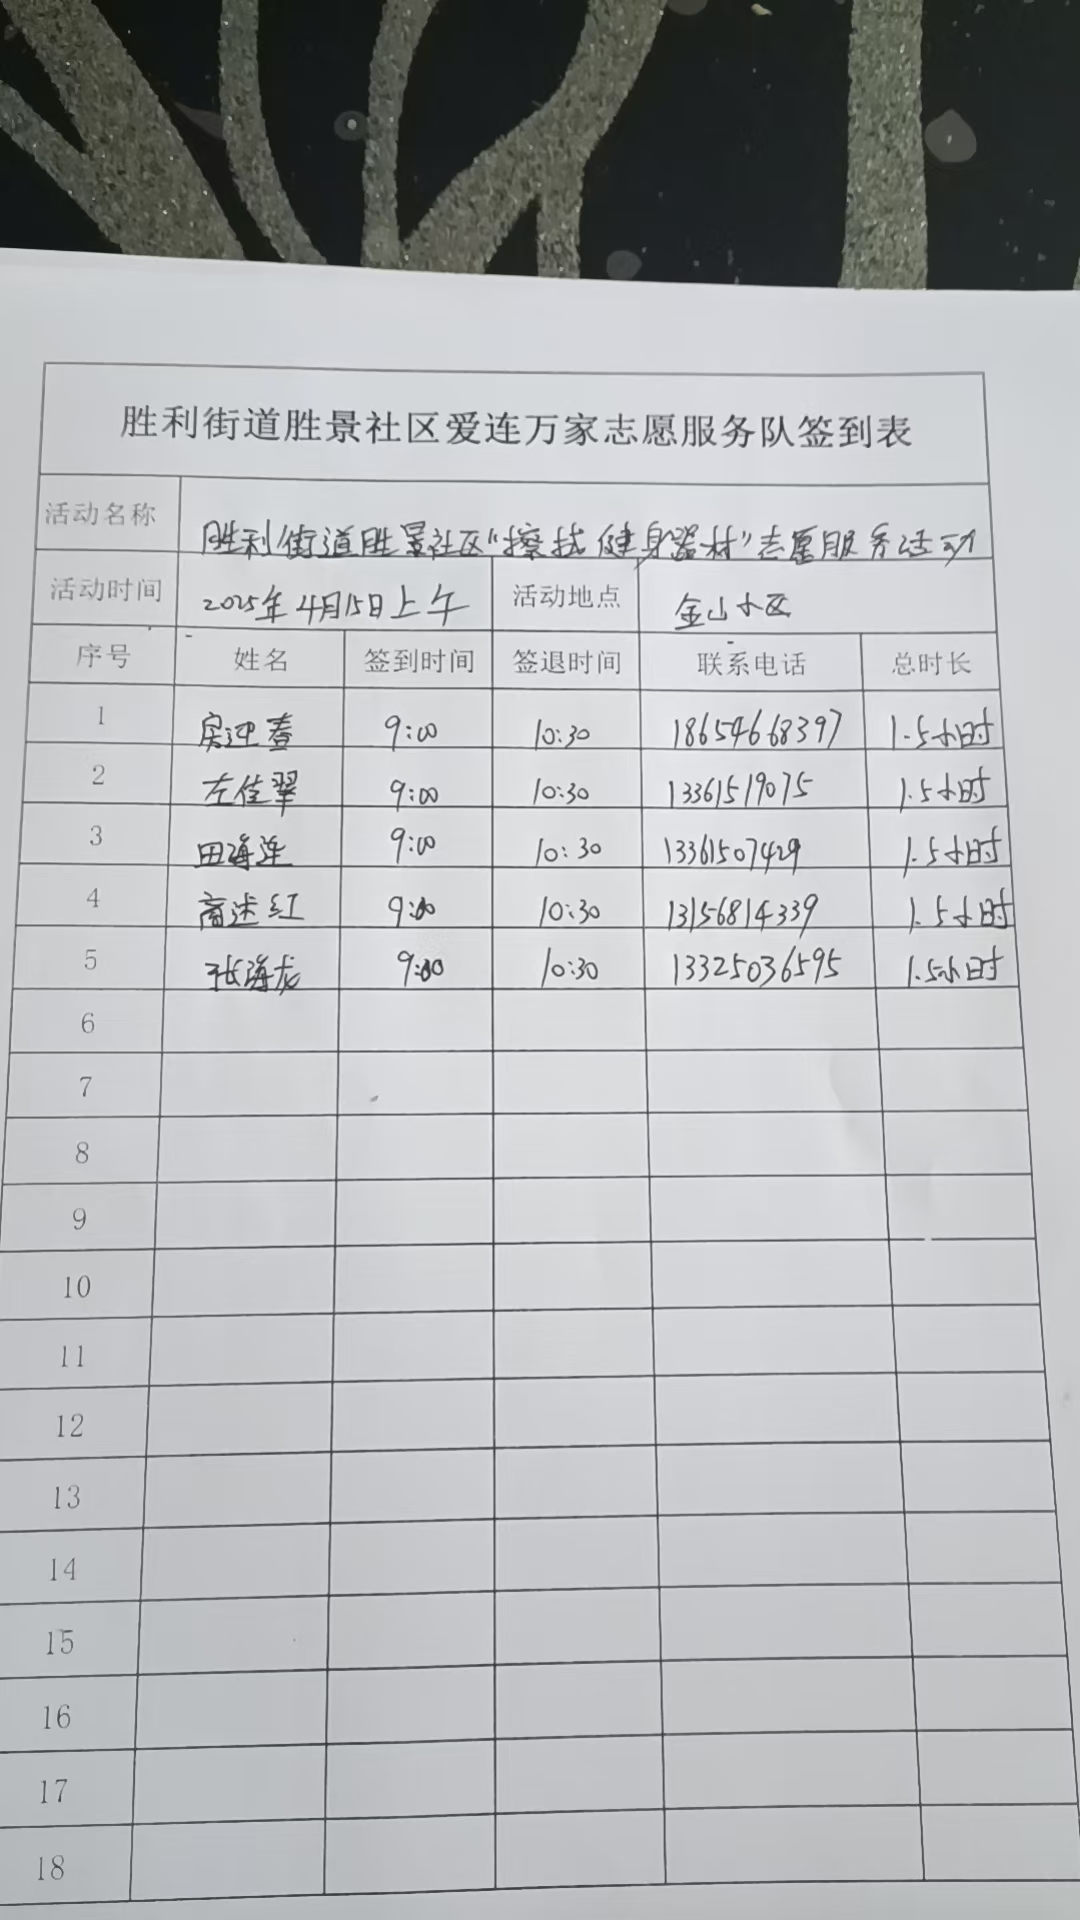 胜利街道胜景社区爱连万家志愿服务队签到表
活动名称 胜利街道胜景社区“擦拭健身器材”志愿服务活动
活动时间 2025年4月15日上午 活动地点 金山小区
序号 姓名 签到时间 签退时间 联系电话 总时长
1 房迎春 9:00 10:30 18654668397 1.5小时
2 左佳翠 9:00 10:30 13361519075 1.5小时
3 田海莲 9:00 10:30 13361507429 1.5小时
4 商述红 9:00 10:30 13156814339 1.5小时
5 张海龙 9:00 10:30 13325036595 1.5小时
6
7
8
9
10
11
12
13
14
15
16
17
18